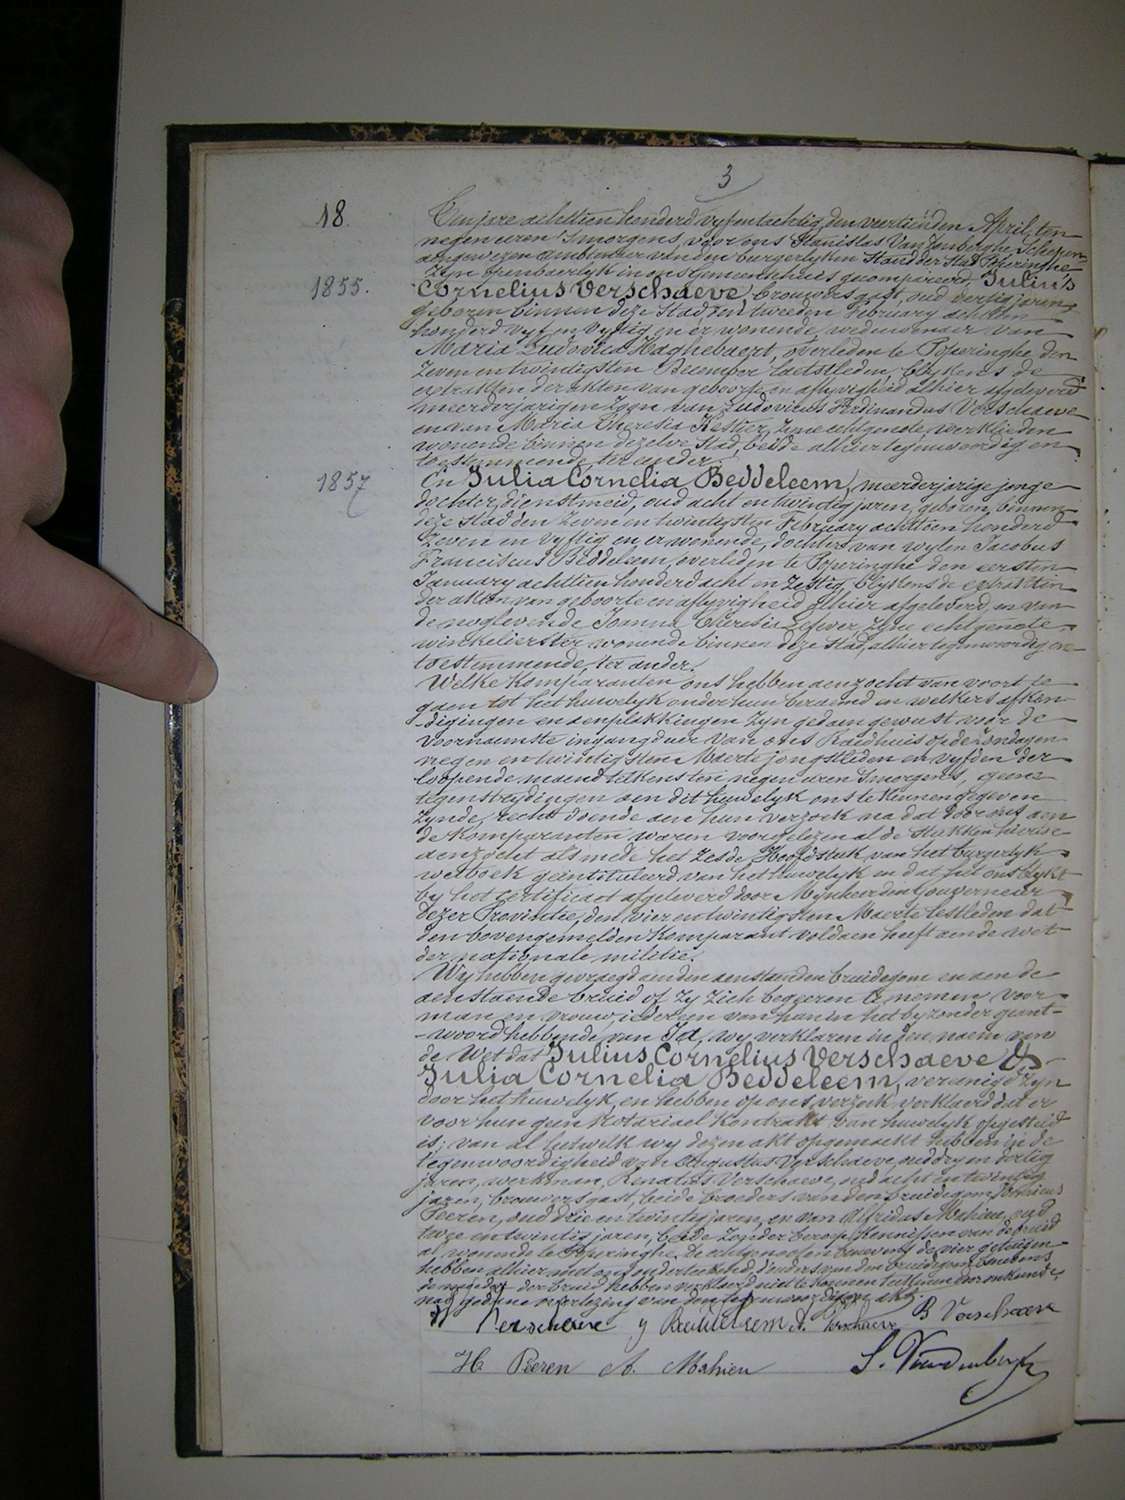 3
18.
Ten jare achttien honderd vyf en tachtig, den veertienden April, ten
negen uren 's morgens, voor ons Stanislas Van Zenberghe, Schepen
aengewezen ambtenaer van den burgerlyken Stand der Stad Poperinghe
zyn openbaerlyk in ons gemeentehuis gecompareerd, Julius
1855.
Cornelius Verschaeve, brouwersgast, oud dertig jaren,
geboren binnen deze Stad den tweeden February achttien
honderd vyf en vyftig en er wonende, weduwenaer van
Maria Ludovica Haghebaert, overleden te Poperinghe den
zeven en twintigsten December laetstleden, blykens de
extrakten der akten van geboorte en aflyvigheid alhier afgeleverd
meerderjarigen zoon van Ludovicus Ferdinandus Verschaeve
en van Maria Theresia Kestier, zyne echtgenote, werklieden
wonende binnen dezelve Stad, beide alhier tegenwoordig en
toestemmende, ter eender.
1857
En Julia Cornelia Beddeleem, meerderjarige jonge
dochter, dienstmeid, oud acht en twintig jaren, geboren binnen
deze Stad den zeven en twintigsten February achttien honderd
zeven en vyftig en er wonende, dochter van wylen Jacobus
Franciscus Beddeleem, overleden te Poperinghe den eersten
January achttien honderd acht en zestig, blykens de extrakten
der akten van geboorte en aflyvigheid alhier afgeleverd, en van
de nog levende Joanna Theresia Lefever, zyne echtgenote
winkelierster, wonende binnen deze Stad, alhier tegenwoordig en
toestemmende, ter ander.
Welke komparanten ons hebben aenzocht van voort te
gaen tot het huwelyk onder hun beraemd en welkers afken
digingen en aenplakkingen zyn gedaen geweest vóór de
voornaemste ingangdeur van ons Raedhuis op de zondagen
negen en twintigsten Maerte jongstleden en vyfden der
loopende maend telkens ten negen uren 's morgens, geene
tegenstrydingen aen dit huwelyk ons te kennen gegeven
zynde, recht doende aen hun verzoek na dat door ons aen
de komparanten waren voorgelezen al de stukken hierin
aenzocht als mede het Zesde Hoofdstuk van het burgerlyk
wetboek geintituleerd van het huwelyk en dat het ons blykt
by het certificaet afgeleverd door Mynheer den Gouverneur
dezer Provincie, den vier en twintigsten Maerte lestleden dat
den bovengemelden komparant voldaen heeft aen de wet
der nationale militie.
Wy hebben gevraegd aen den aenstaenden bruidegom en aen de
aenstaende bruid of zy zich begeeren te nemen voor
man en vrouw, iedereen van hun in het byzonder geant-
-woord hebbende van Ja, wy verklaren in den naem van
de Wet dat Julius Cornelius Verschaeve &
Julia Cornelia Beddeleem, vereenigd zyn
door het huwelyk, en hebben op ons verzoek verklaerd dat er
voor hun geen Notariael Kontrakt van huwelyk opgesteld
is; van al hetwelk wy dezen akt opgemaekt hebben in de
tegenwoordigheid van Augustus Verschaeve, oud dry en dertig
jaren, werkman, Renatus Verschaeve, oud acht en twintig
jaren, brouwersgast, beide broeders van den bruidegom,
Peeren, oud drie en twintig jaren, en van Alfridus Mahieu, oud
twee en twintig jaren, beide zonder beroep, kennissen van de bruid
al wonende te Poperinghe. De echtgenooten benevens de vier getuigen
hebben alhier met ons onderteekend, d'ouders van den bruidegom benevens
de moeder der bruid hebben verklaerd niet te kunnen
na gedane voorlezing van den tegenwoordigen akt.
Verschaeve J Beddeleem A. Verschaeve R Verschaeve
H Peeren A. Mahieu